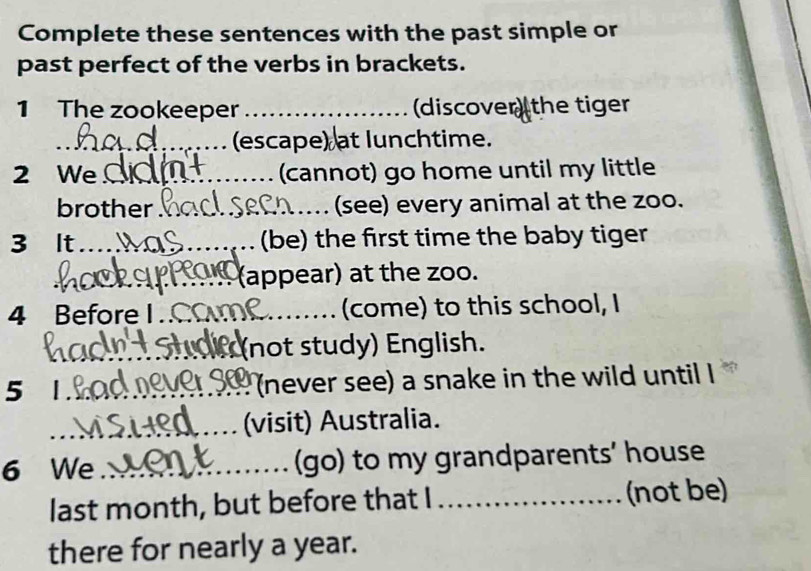 Complete these sentences with the past simple or
past perfect of the verbs in brackets.
1 The zookeeper .................... (discover) the tiger
..had......... (escape) at lunchtime.
2 We didn't......... (cannot) go home until my little
brother had seen.... (see) every animal at the zoo.
3 It .... was ......... (be) the first time the baby tiger
had appeard (appear) at the zoo.
4 Before I .. came ........ (come) to this school, I
hadn't studied (not study) English.
5 I .had never seen (never see) a snake in the wild until I
...visited.... (visit) Australia.
6 We .. went ......... (go) to my grandparents' house
last month, but before that I .................... (not be)
there for nearly a year.